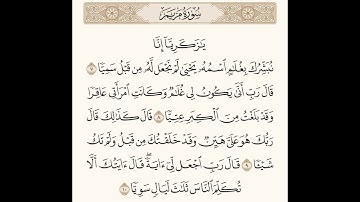 سُورَةُ مَرْيَمَ
يَٰزَكَرِيَّآ إِنَّا
نُبَشِّرُكَ بِغُلَٰمٍ ٱسْمُهُۥ يَحْيَىٰ لَمْ نَجْعَل لَّهُۥ مِن قَبْلُ سَمِيًّا ٧
قَالَ رَبِّ أَنَّىٰ يَكُونُ لِى غُلَٰمٌ وَكَانَتِ ٱمْرَأَتِى عَاقِرًا
وَقَدْ بَلَغْتُ مِنَ ٱلْكِبَرِ عِتِيًّا ٨ قَالَ كَذَٰلِكَ قَالَ
رَبُّكَ هُوَ عَلَىَّ هَيِّنٌ وَقَدْ خَلَقْتُكَ مِن قَبْلُ وَلَمْ تَكُ
شَيْـًٔا ٩ قَالَ رَبِّ ٱجْعَل لِّىٓ ءَايَةً قَالَ ءَايَتُكَ أَلَّا
تُكَلِّمَ ٱلنَّاسَ ثَلَٰثَ لَيَالٍ سَوِيًّا ١٠